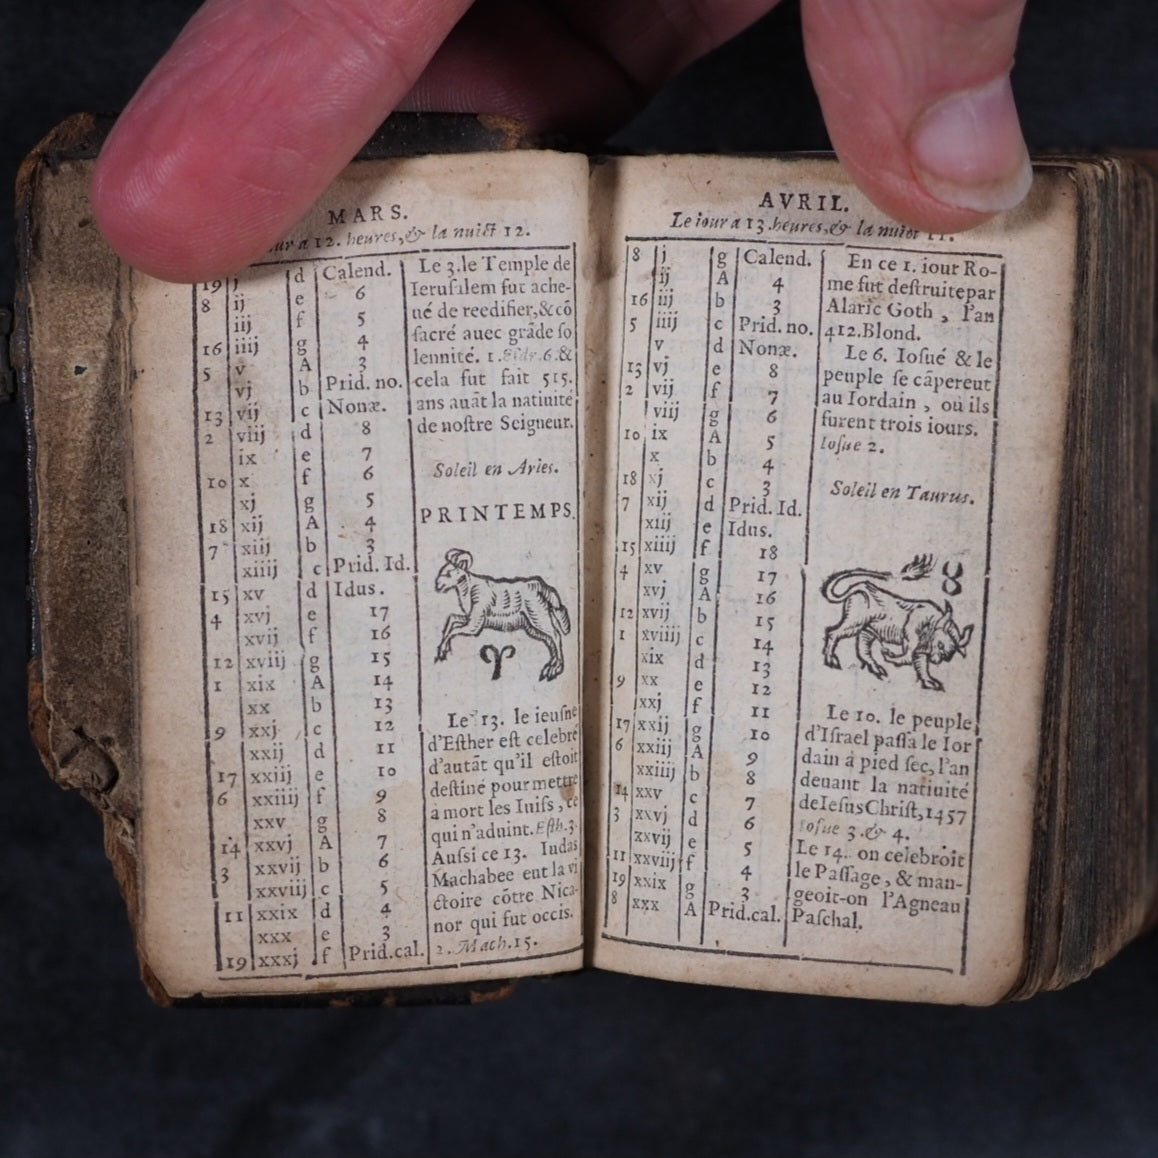 MARS.
a 12. heures, & la nuict 12.
19 j d Calend.
8 ij e 6
iij f 5
16 iiij g 4
5 v A 3
vj b Prid. no.
13 vij c Nonæ.
2 viij d 8
ix e 7
10 x f 6
xj g 5
18 xij A 4
7 xiij b 3
xiiij c Prid. Id.
15 xv d Idus.
4 xvj e 17
xvij f 16
12 xviij g 15
1 xix A 14
xx b 13
9 xxj c 12
xxij d 11
17 xxiij e 10
6 xxiiij f 9
xxv g 8
14 xxvj A 7
3 xxvij b 6
xxviij c 5
11 xxix d 4
xxx e 3
19 xxxj f Prid.cal.
Le 3. le Temple de
Ierusalem fut ache-
ué de reedifier, & cō
sacré auec grāde so
lennité. 1. Esdr. 6. &
cela fut fait 515.
ans auāt la natiuité
de nostre Seigneur.
Soleil en Aries.
PRINTEMPS.
♈
Le 13. le ieusne
d'Esther est celebré
d'autāt qu'il estoit
destiné pour mettre
à mort les Iuifs, ce
qui n'aduint. Esth. 3.
Aussi ce 13. Iudas
Machabee eut la vi
ctoire cōtre Nica-
nor qui fut occis.
2. Mach. 15.
AVRIL.
Le iour a 13. heures, & la nuict 11.
8 j g Calend.
ij A 4
16 iij b 3
5 iiij c Prid. no.
v d Nonæ.
13 vj e 8
2 vij f 7
viij g 6
10 ix A 5
x b 4
18 xj c 3
7 xij d Prid. Id.
xiij e Idus.
15 xiiij f 18
4 xv g 17
xvj A 16
12 xvij b 15
1 xviiij c 14
xix d 13
9 xx e 12
xxj f 11
17 xxij g 10
6 xxiij A 9
xxiiij b 8
14 xxv c 7
3 xxvj d 6
xxvij e 5
11 xxviij f 4
19 xxix g 3
8 xxx A Prid.cal.
En ce 1. iour Ro-
me fut destruite par
Alaric Goth, l'an
412. Blond.
Le 6. Iosué & le
peuple se cāpereut
au Iordain, où ils
furent trois iours.
Iosue 2.
Soleil en Taurus.
♉
Le 10. le peuple
d'Israel passa le Ior
dain à pied sec, l'an
deuant la natiuité
de Iesus Christ, 1457
Iosue 3. & 4.
Le 14. on celebroit
le Passage, & man-
geoit-on l'Agneau
Paschal.